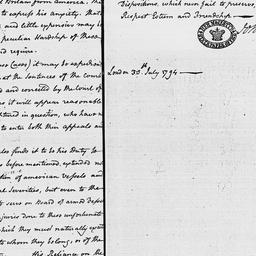 Britain from America, the
to express his anxiety, that
and little expensive may be
peculiar Hardship of these
and require.
these Cases, it may be expedient
at the sentences of the Courts
and corrected by the Court of
it will appear reasonable
captured in question, who have
to enter both their appeals and
finds it to be his Duty
before mentioned, extended
of american vessels and
Severities, but even to the
to serve on Board of armed
injuries done to these unfortunate
which they must naturally
to whom they belong, or of the
His Reliance on the
Dispositions, which never fail to preserve,
Respect Esteem and Friendship —
London 30th July 1794 —